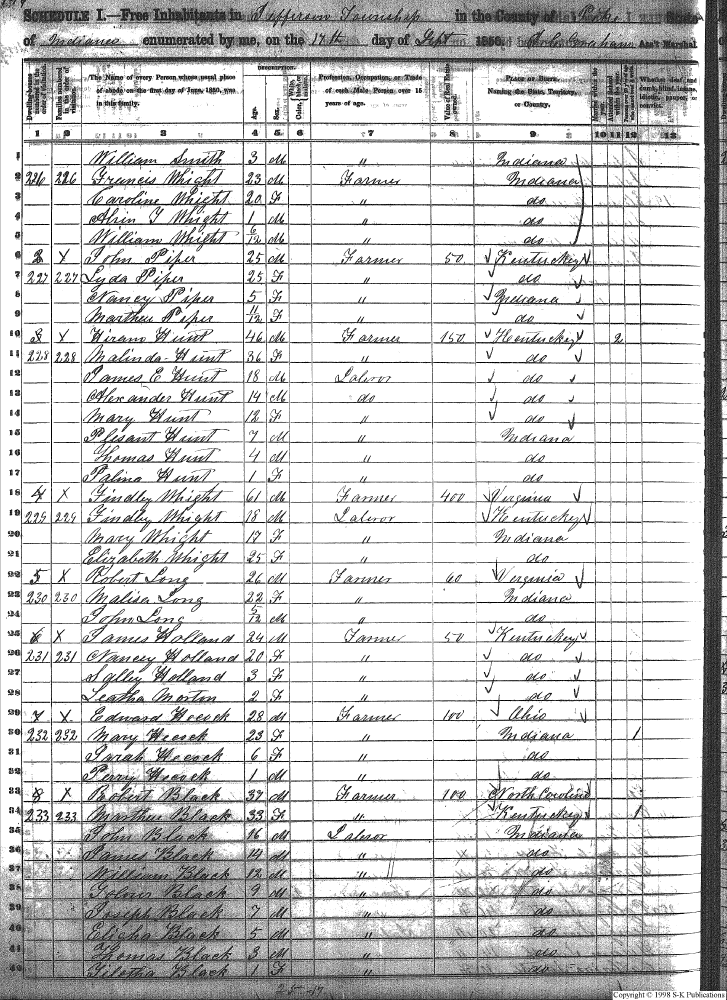 SCHEDULE I.—Free Inhabitants in Jefferson Township in the County of Pike State
of Indiana enumerated by me, on the 17th day of Sept 1850. Ass't Marshal
DESCRIPTION.
Dwelling-houses numbered in the order of visitation.
Families numbered in the order of visitation.
The Name of every Person whose usual place of abode on the first day of June, 1850, was in this family.
Age.
Sex.
Color
Profession, Occupation, or Trade of each Male Person over 15 years of age.
Value of Real Estate owned.
PLACE OF BIRTH. Naming the State, Territory, or Country.
Married within the
Attended School
Whether deaf and dumb, blind, insane,
1 2 3 4 5 6 7 8 9 10 11 12 13
1 William Smith 3 M " Indiana
2 226 226 Francis Whight 23 M Farmer Indiana
3 Caroline Whight 20 F " do
4 Whight 1 M " do
5 William Whight 6/12 M " do
6 2 X John Piper 25 M Farmer 50 Kentuckey
7 227 227 Lyda Piper 25 F " do
8 Nancy Piper 5 F " Indiana
9 Marthea Piper 11/12 F " do
10 3 X Hiram Hunt 46 M Farmer 150 Kentuckey 2
11 228 228 Malinda Hunt 36 F " do
12 James E Hunt 18 M Labror do
13 Alexander Hunt 14 M do do
14 Mary Hunt 12 F " do
15 Plesant Hunt 7 M " Indiana
16 Thomas Hunt 4 M " do
17 Palina Hunt 1 F " do
18 4 X Findley Whight 61 M Farmer 400 Virginia
19 229 229 Findley Whight 18 M Labror Kentuckey
20 Mary Whight 17 F " Indiana
21 Elizabeth Whight 25 F " do
22 5 X Robert Long 26 M Farmer 60 Virginia
23 230 230 Malisa Long 22 F " Indiana
24 John Long 5/12 M " do
25 6 X James Holland 24 M Farmer 50 Kentuckey
26 231 231 Nancey Holland 20 F " do
27 Salley Holland 3 F " do
28 Leatha Morton 2 F " do
29 7 X Edward Hecock 28 M Farmer 100 Ohio
30 232 232 Mary Hecock 23 F " Indiana 1
31 Sarah Hecock 6 F " do
32 Perry Hecock 1 M " do
33 8 X Robert Black 37 M Farmer 100 North Carolina
34 233 233 Marthea Black 33 F " Kentuckey 1
35 John Black 16 M Labror Indiana
36 James Black 14 M " do
37 William Black 12 M " do
38 Black 9 M " do
39 Joseph Black 7 M " do
40 Elisha Black 5 M " do
41 Thomas Black 3 M " do
42 Black 1 F " do
25 17
Copyright © 1998 S-K Publications